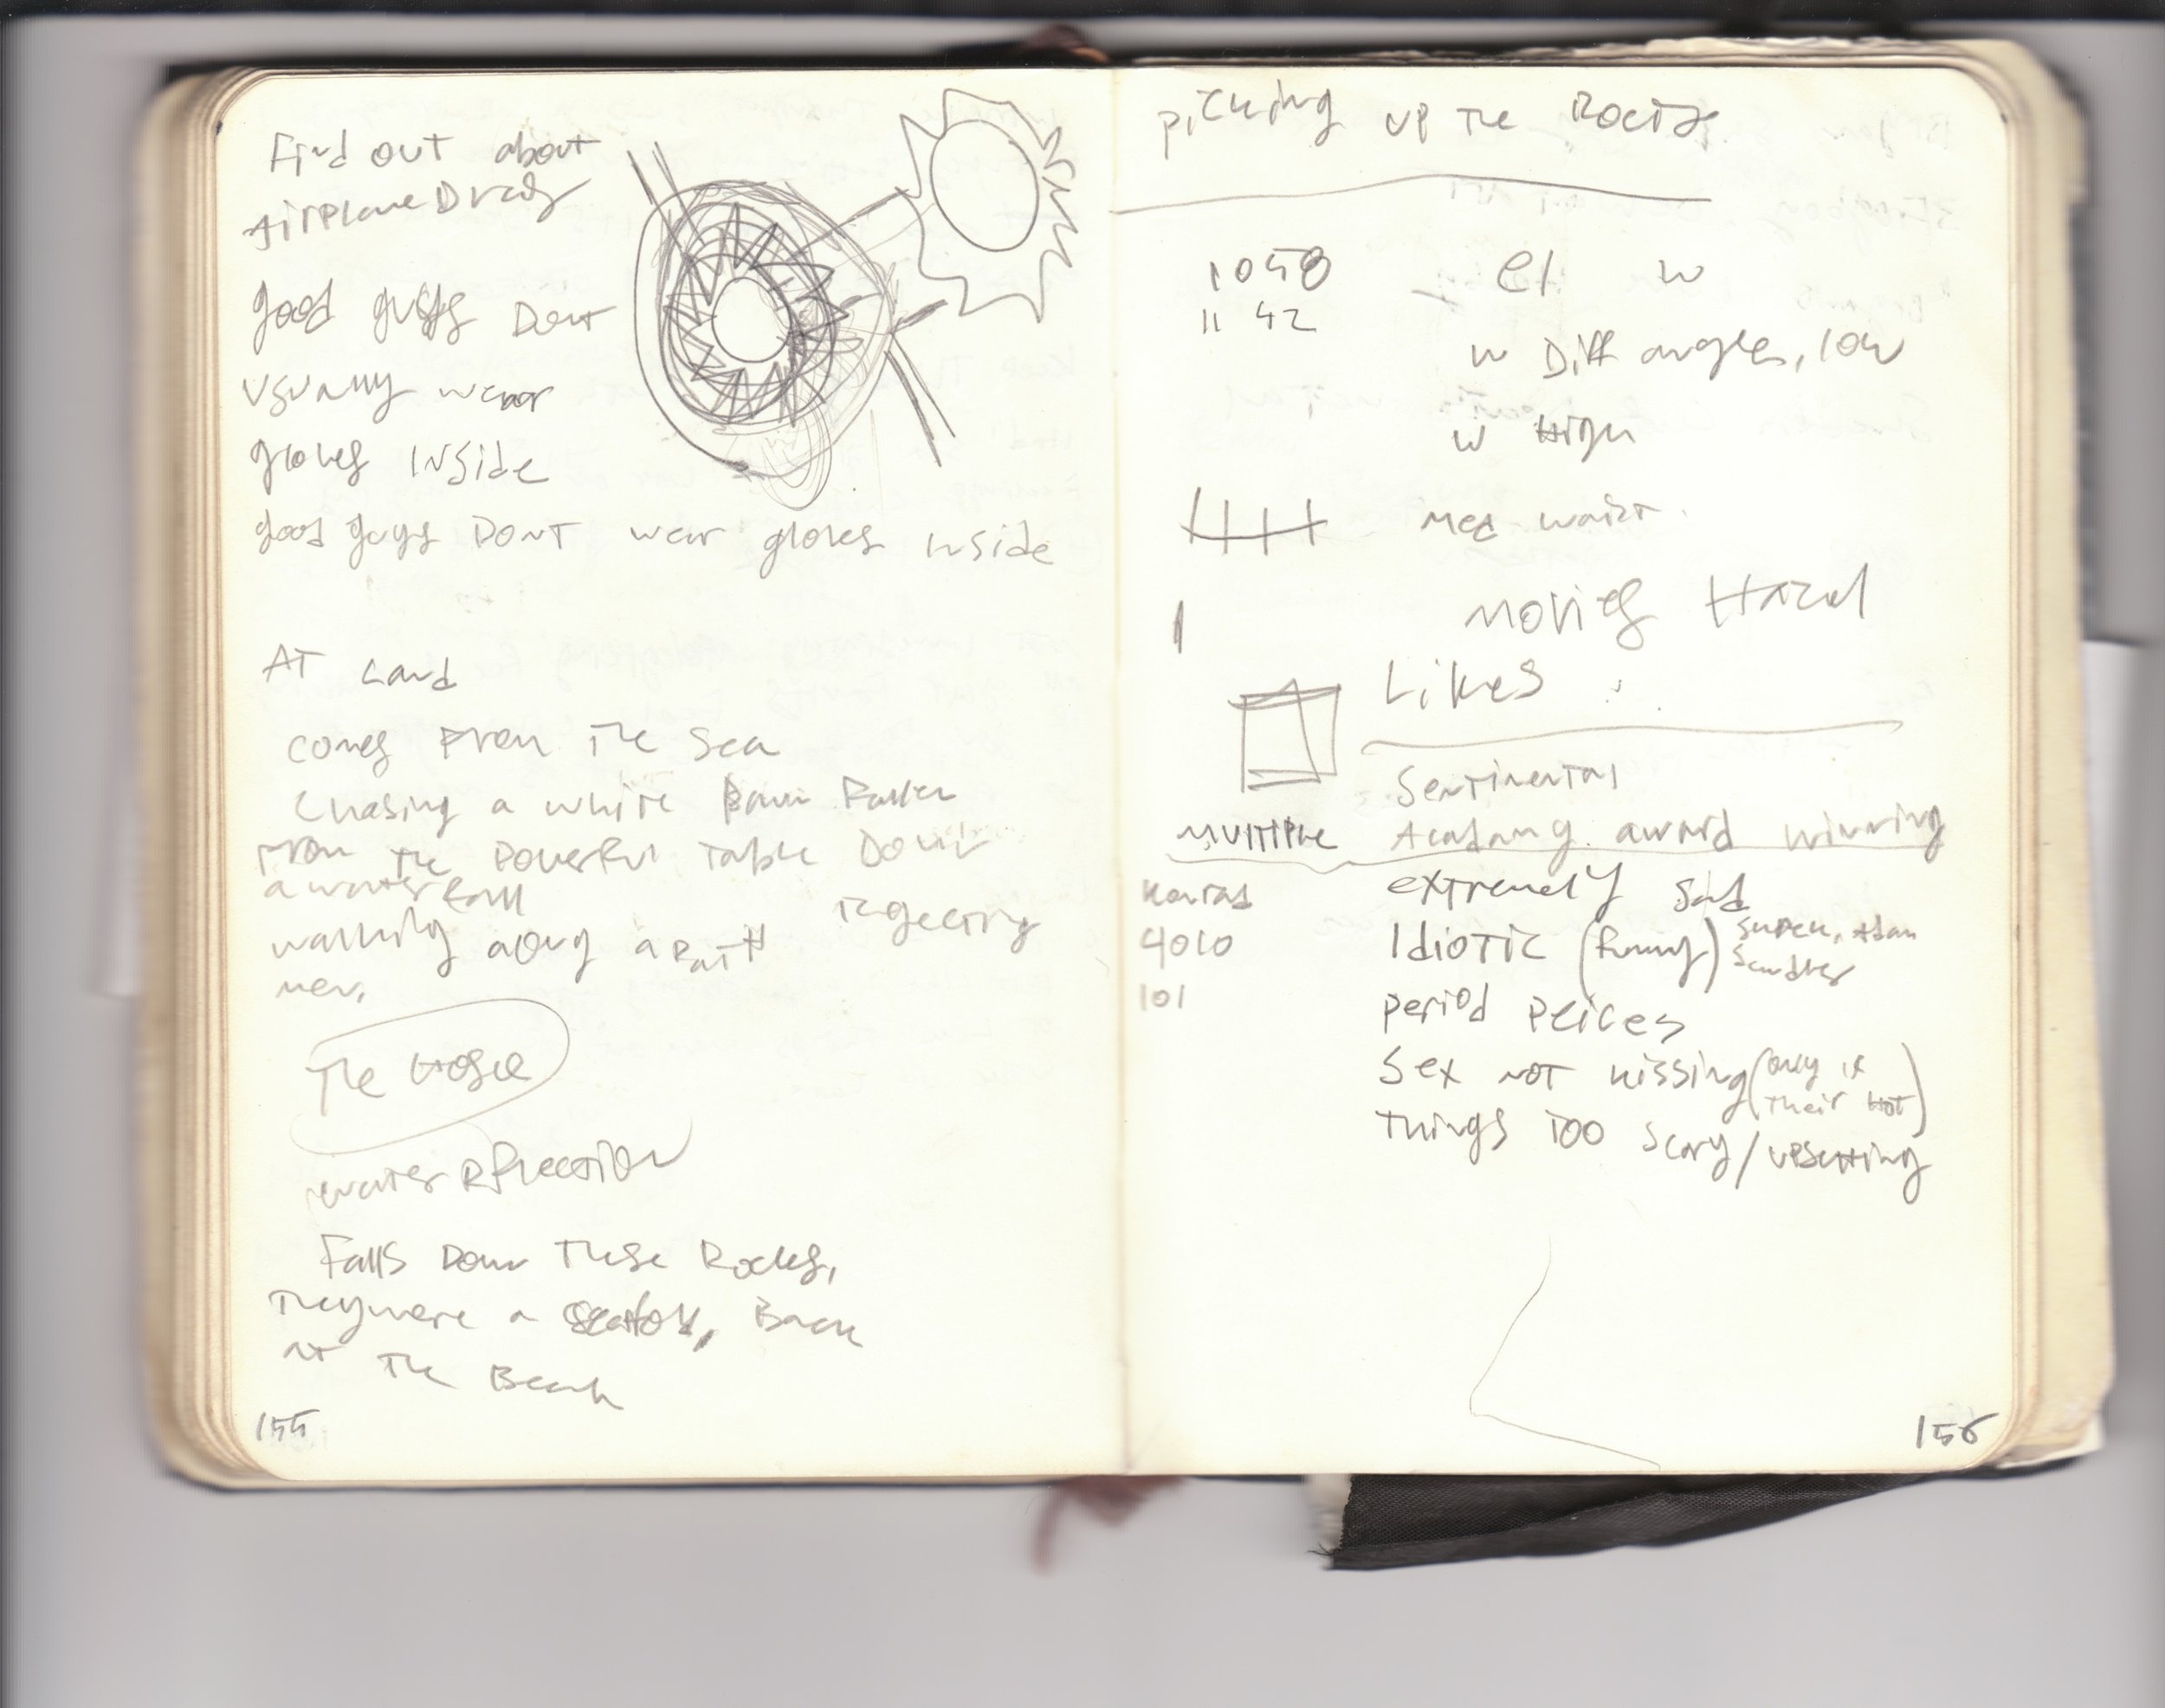 Find out about
Airplane Drag
good guys Dont
usually wear
gloves Inside
good guys DonT wear gloves inside
AT Land
comes From The Sea
Chasing a white
From The Powerful Table Down
a waterfall
walking along a Path
men.
The House
water
Falls Down These Rocks,
They were a Back
at The Beach
155
picking up The Rocks
1058
11 42
el w
w Diff angles, low
w High
Med waist
movies Hazel
Likes
Sentimental
Multiple
Academy award winning
extremely Sad
4010
Idiotic (funny) Adam
Sandler
101
period peices
Sex not kissing (only if
Their Hot)
Things Too Scary/upsetting
156